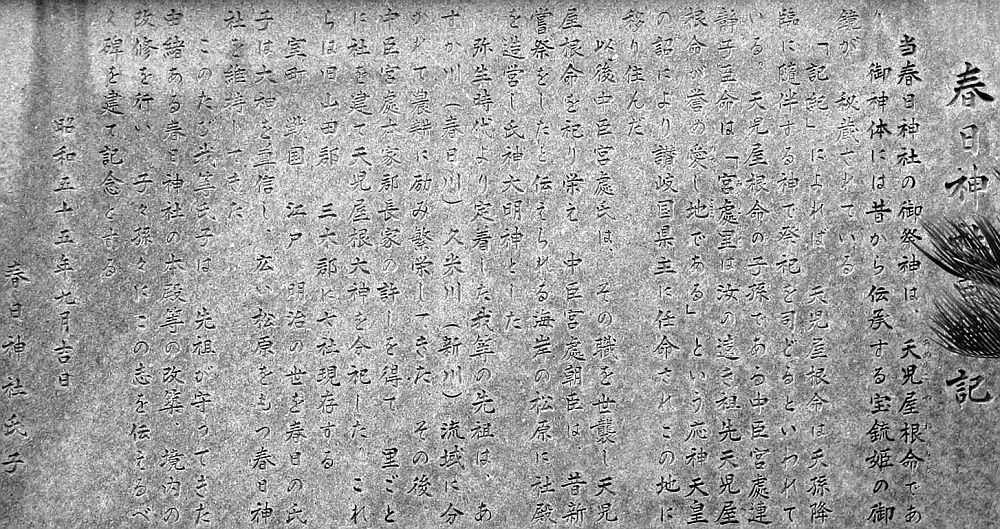 春日神 記
当春日神社の御祭神は、天児屋根命であ
り 御神体には昔から伝承する宝鏡姫の御
鏡が 秘蔵されている
「記紀」によれば 天児屋根命は天孫降
臨に随伴する神で祭祀を司どるといわれて
いる。天児屋根命の子孫である中臣宮處連
静子臣命は「宮處里は汝の遠き祖先天児屋
根命が誉め愛し地である」という応神天皇
の詔により讃岐国県主に任命されこの地に
移り住んだ
以後中臣宮處氏は、その職を世襲し 天児
屋根命を祀り栄え 中臣宮處朝臣は、昔新
嘗祭をしたと伝えられる海岸の松原に社殿
を造営し氏神大明神とした
弥生時代より定着した我等の先祖は、あ
すか川(春日川)久米川(新川)流域に分
かれて農耕に励み繁栄してきた、その後
中臣宮處太家郡長家の許しを得て 里ごと
に社を建て天児屋根大神を分祀した これ
らは旧山田郡 三木郡に六社現存する
室町 戦国 江戸 明治の世を春日の氏
子は大神を尊信し、広い松原をもつ春日神
社を維持してきた
このたび我等氏子は、先祖が守ってきた
由緒ある春日神社の本殿等の改築、境内の
改修を行い、子々孫々にこの志を伝えるべ
く碑を建て記念とする
昭和五十五年九月吉日
春日神社氏子